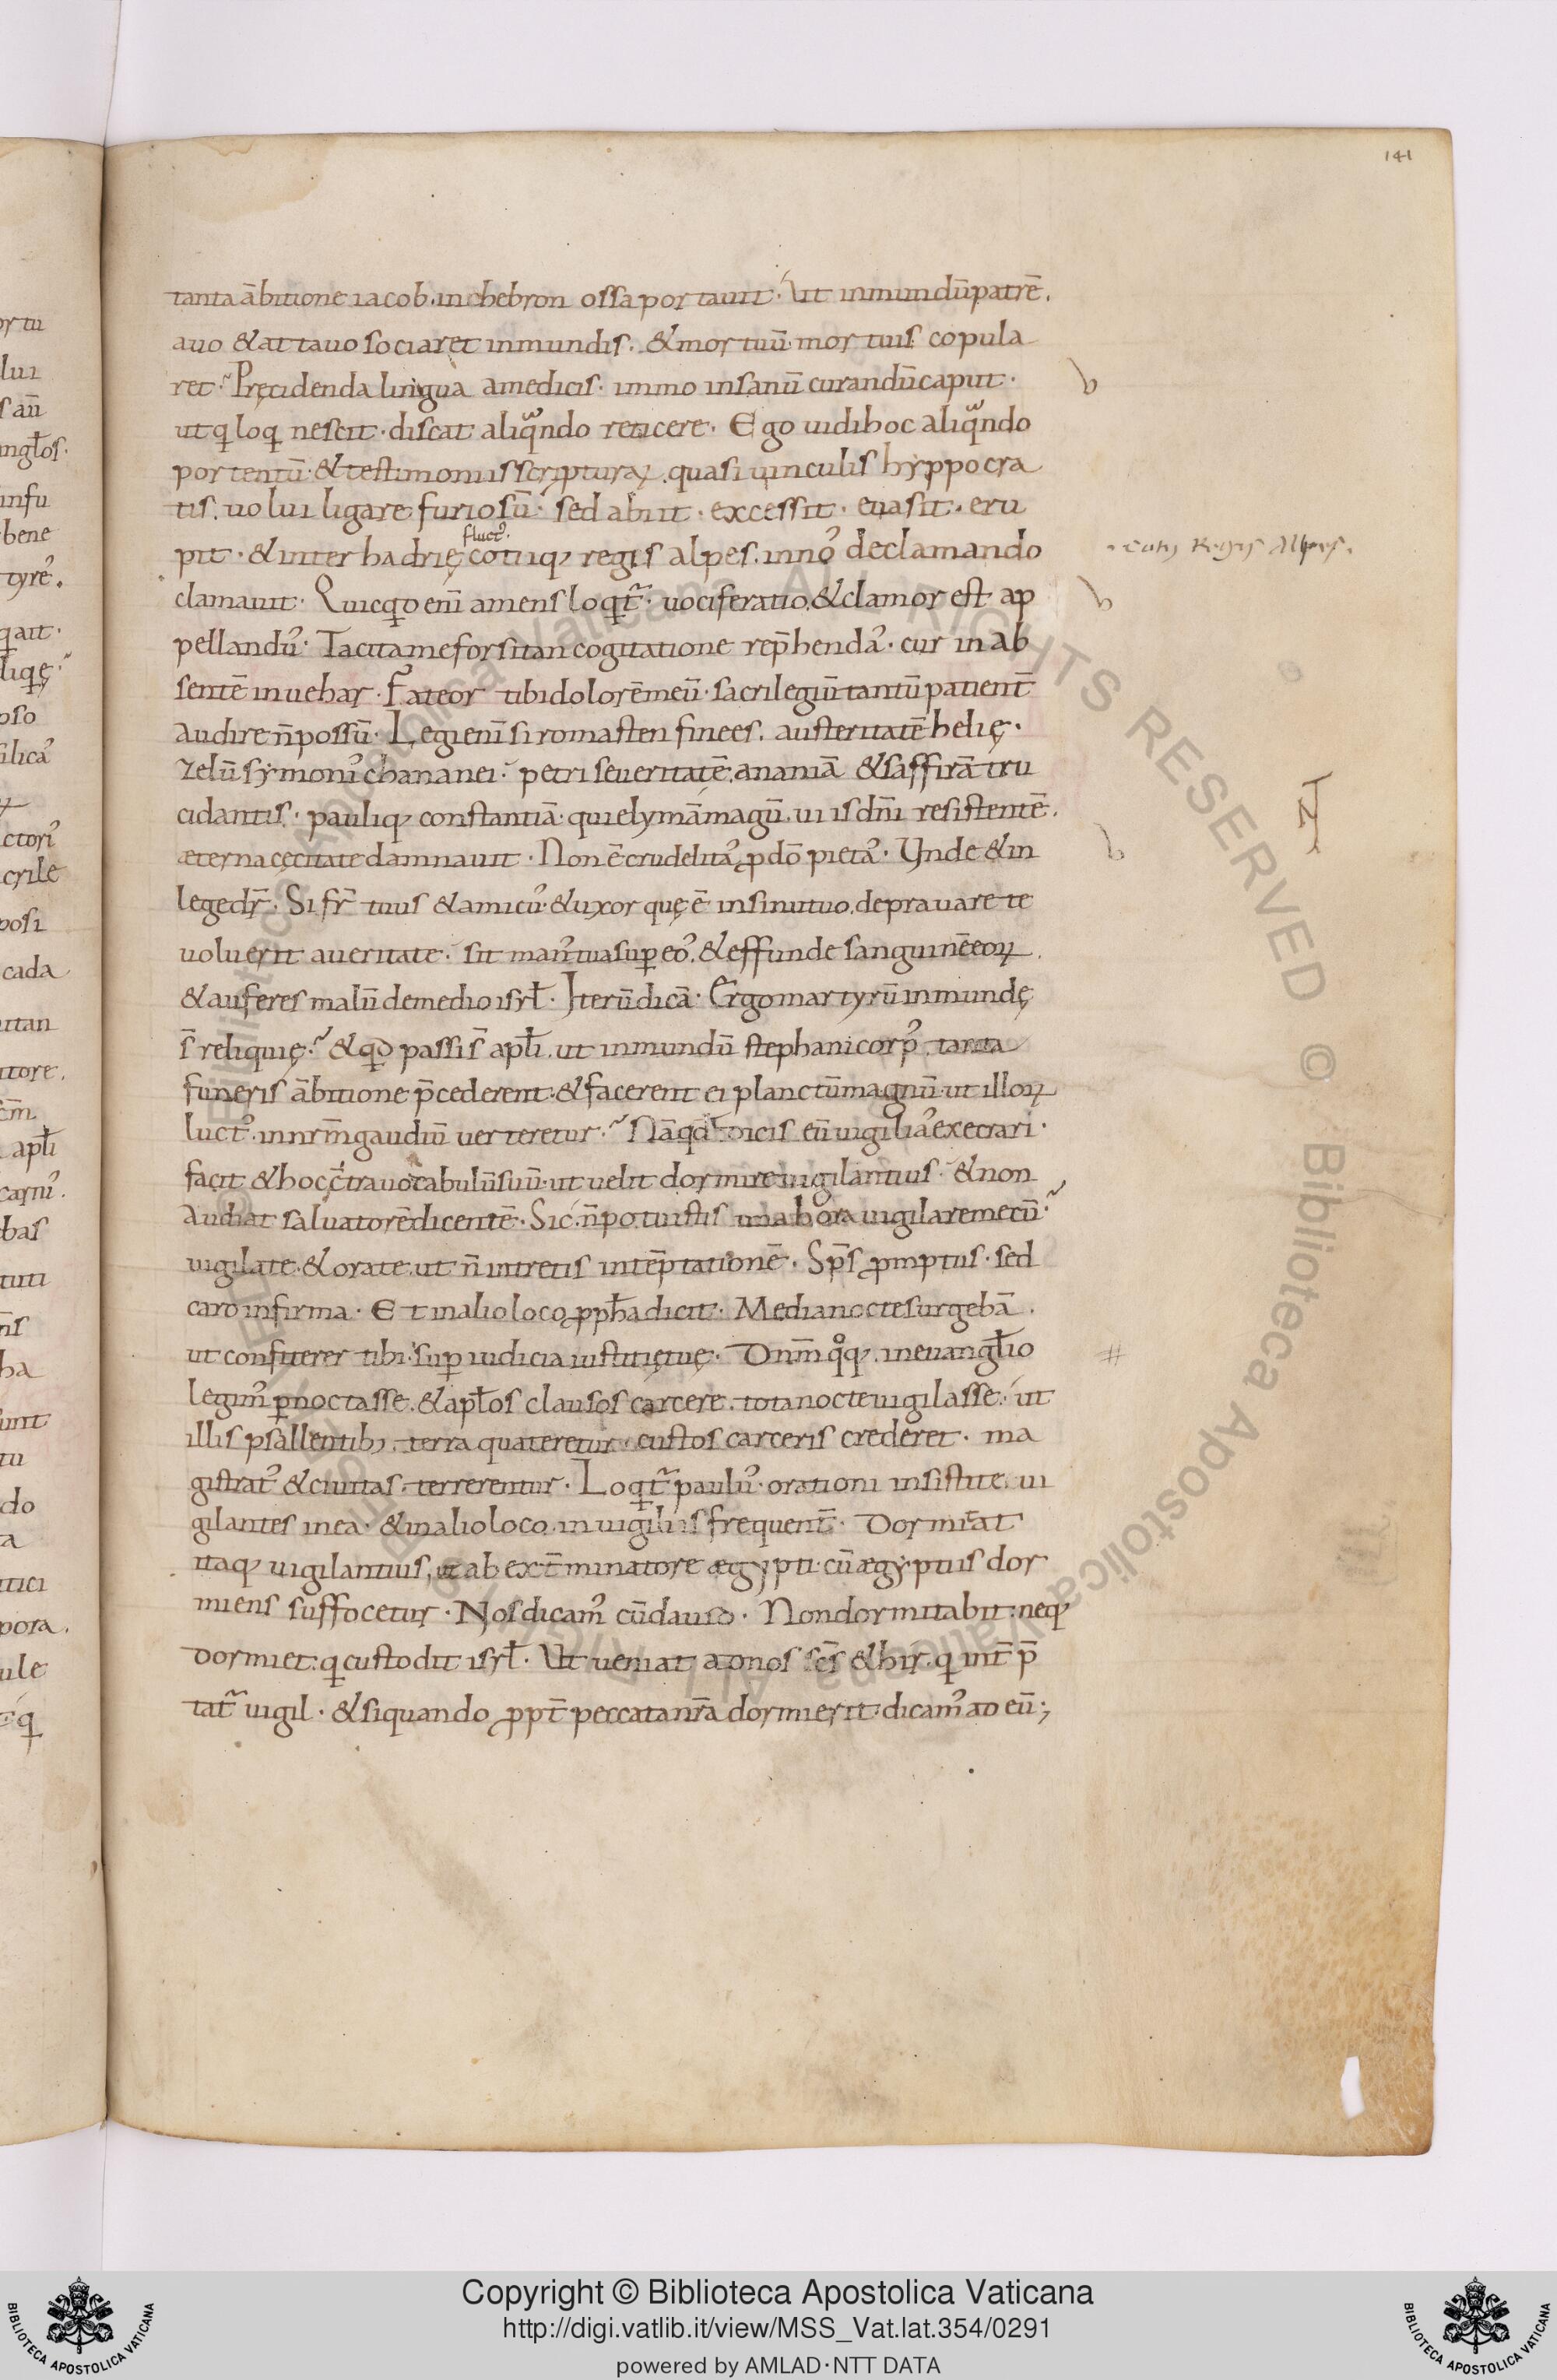 141
tanta ābitione iacob. in chebron ossa portauit. Ut inmundū patrē.
auo & attauo sociaret inmundis. & mortuū mortuis copula
ret? Pręcidenda lingua a medicis. immo insanū curandū caput.
ut q loq nescit. discat aliqndo reticere. Ego uidi hoc aliqndo
portentū. & testimoniis scripturaꝝ. quasi uinculis hyppocra
tis. uolui ligare furiosū. sed abiit. excessit. euasit. eru
fluct᾿.
pit. & inter hadrię cotiiq; regis alpes. in no᾿ declamando
cotij Regis Alpes.
clamauit. Quicqd eni amens loqt̄. uociferatio. & clamor est ap
pellandū. Tacita me forsitan cogitatione rep̄hendā. cur in ab
sentē inuehar. Fateor tibi dolorē meū. sacrilegiū tantū patient̄
audire n̄ possū. Legi enī siromasten finees. austeritatē helię.
zelū symoni᾿ chananei. petri seueritatē. ananiā & saffirā tru
cidantis. pauliq; constantiā. qui elymā magū. uiis dn̄i resistentē.
æterna cęcitate damnauit. Non ē crudelita᾿ ꝓ dō pieta᾿. Unde & in
lege dr̄. Si fr̄ tuus & amicu᾿ & uxor quę ē in sinu tuo. deprauare te
uoluerit a ueritate. sit man᾿ tua suꝑ eo᾿. & effunde sanguinē eoꝝ.
& auferes malū de medio isrł. Iterū dicā. Ergo martyrū inmundę
s̄ reliquię? & qd passi s̄ apłi. ut inmundū stephani corp᾿. tanta
funeris ābitione p̄cederent. & facerent ei planctū magnū. ut illoꝝ
luct᾿. in nrm̄ gaudiū uerteretur? Nā qd dicis eū uigilia᾿ execrari.
facit & hoc c̄tra uocabulū suū. ut uelit dormire uigilantius. & non
audiat saluatorē dicentē. Sic n̄ potuistis una hora uigilare mecū?
uigilate & orate. ut n̄ intretis in tēptationē. Sp̄s ꝓmptus. sed
caro infirma. Et in alio loco ꝓpħa dicit. Media nocte surgebā.
ut confiterer tibi. suꝑ iudicia iustitię tuę. Dnm̄ qoq;. in euangłio
legim᾿ ꝑnoctasse. & apłos clausos carcere. tota nocte uigilasse. ut
illis psallentib;. terra quateretur. custos carceris crederet. ma
gistrat᾿ & ciuitas. terrerentur. Loqt̄ paulu᾿. orationi insistite. ui
gilantes in ea. & in alio loco. in uigiliis frequent̄. Dormiat
itaq; uigilantius. ut ab ext̄minatore ægypti. cū ægyptiis dor
miens suffocetur. Nos dicam᾿ cū dauid. Non dormitabit. neq;
dormiet. q custodit isrł. Ut ueniat ad nos sc̄s & hir. q int̄p̄
tat̄ uigil. & si quando ꝓpt̄ peccata nr̄a dormierit. dicam᾿ ad eū;
Copyright © Biblioteca Apostolica Vaticana
http://digi.vatlib.it/view/MSS_Vat.lat.354/0291
powered by AMLAD·NTT DATA